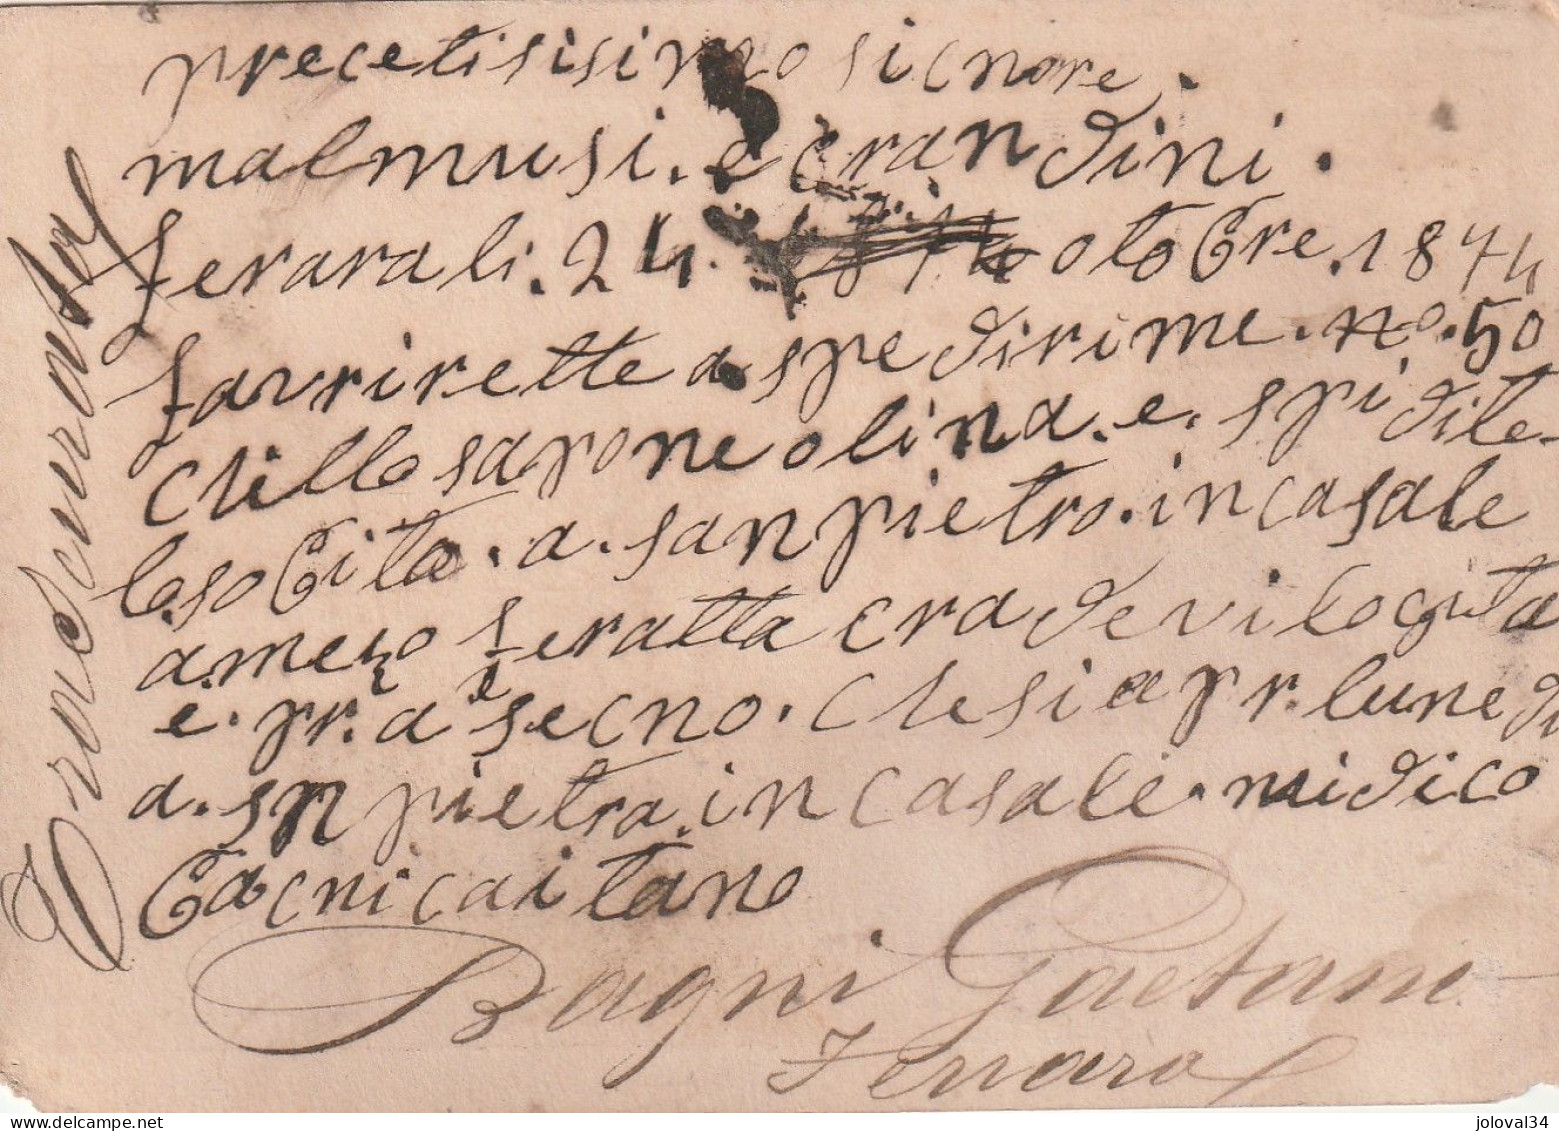 precetisisimo sicnore.
malmusi. e crandini.
ferara li. 24. otobre. 1874
favrirette a spedirime. no. 50
chillo sapone olina. e. spidile
la sobita. a. san pietro. in casale
a mezo feratta cradevilocita
e. pr. a segno. che sia pr. lunedi
a. sn pietra. in casale. midico
Bacni caitano
Bagni Gaetano
Ferrara
Transcurato
delcampe.net
joloval34